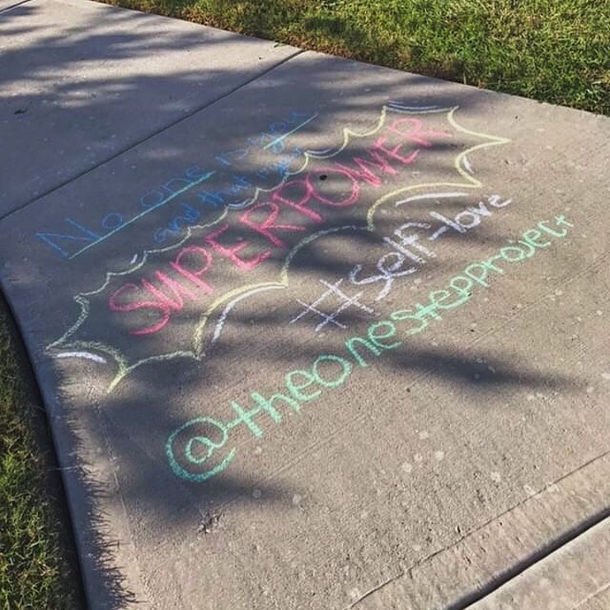 No one is you
and that is your
SUPERPOWER
#self-love
@theonestepproject